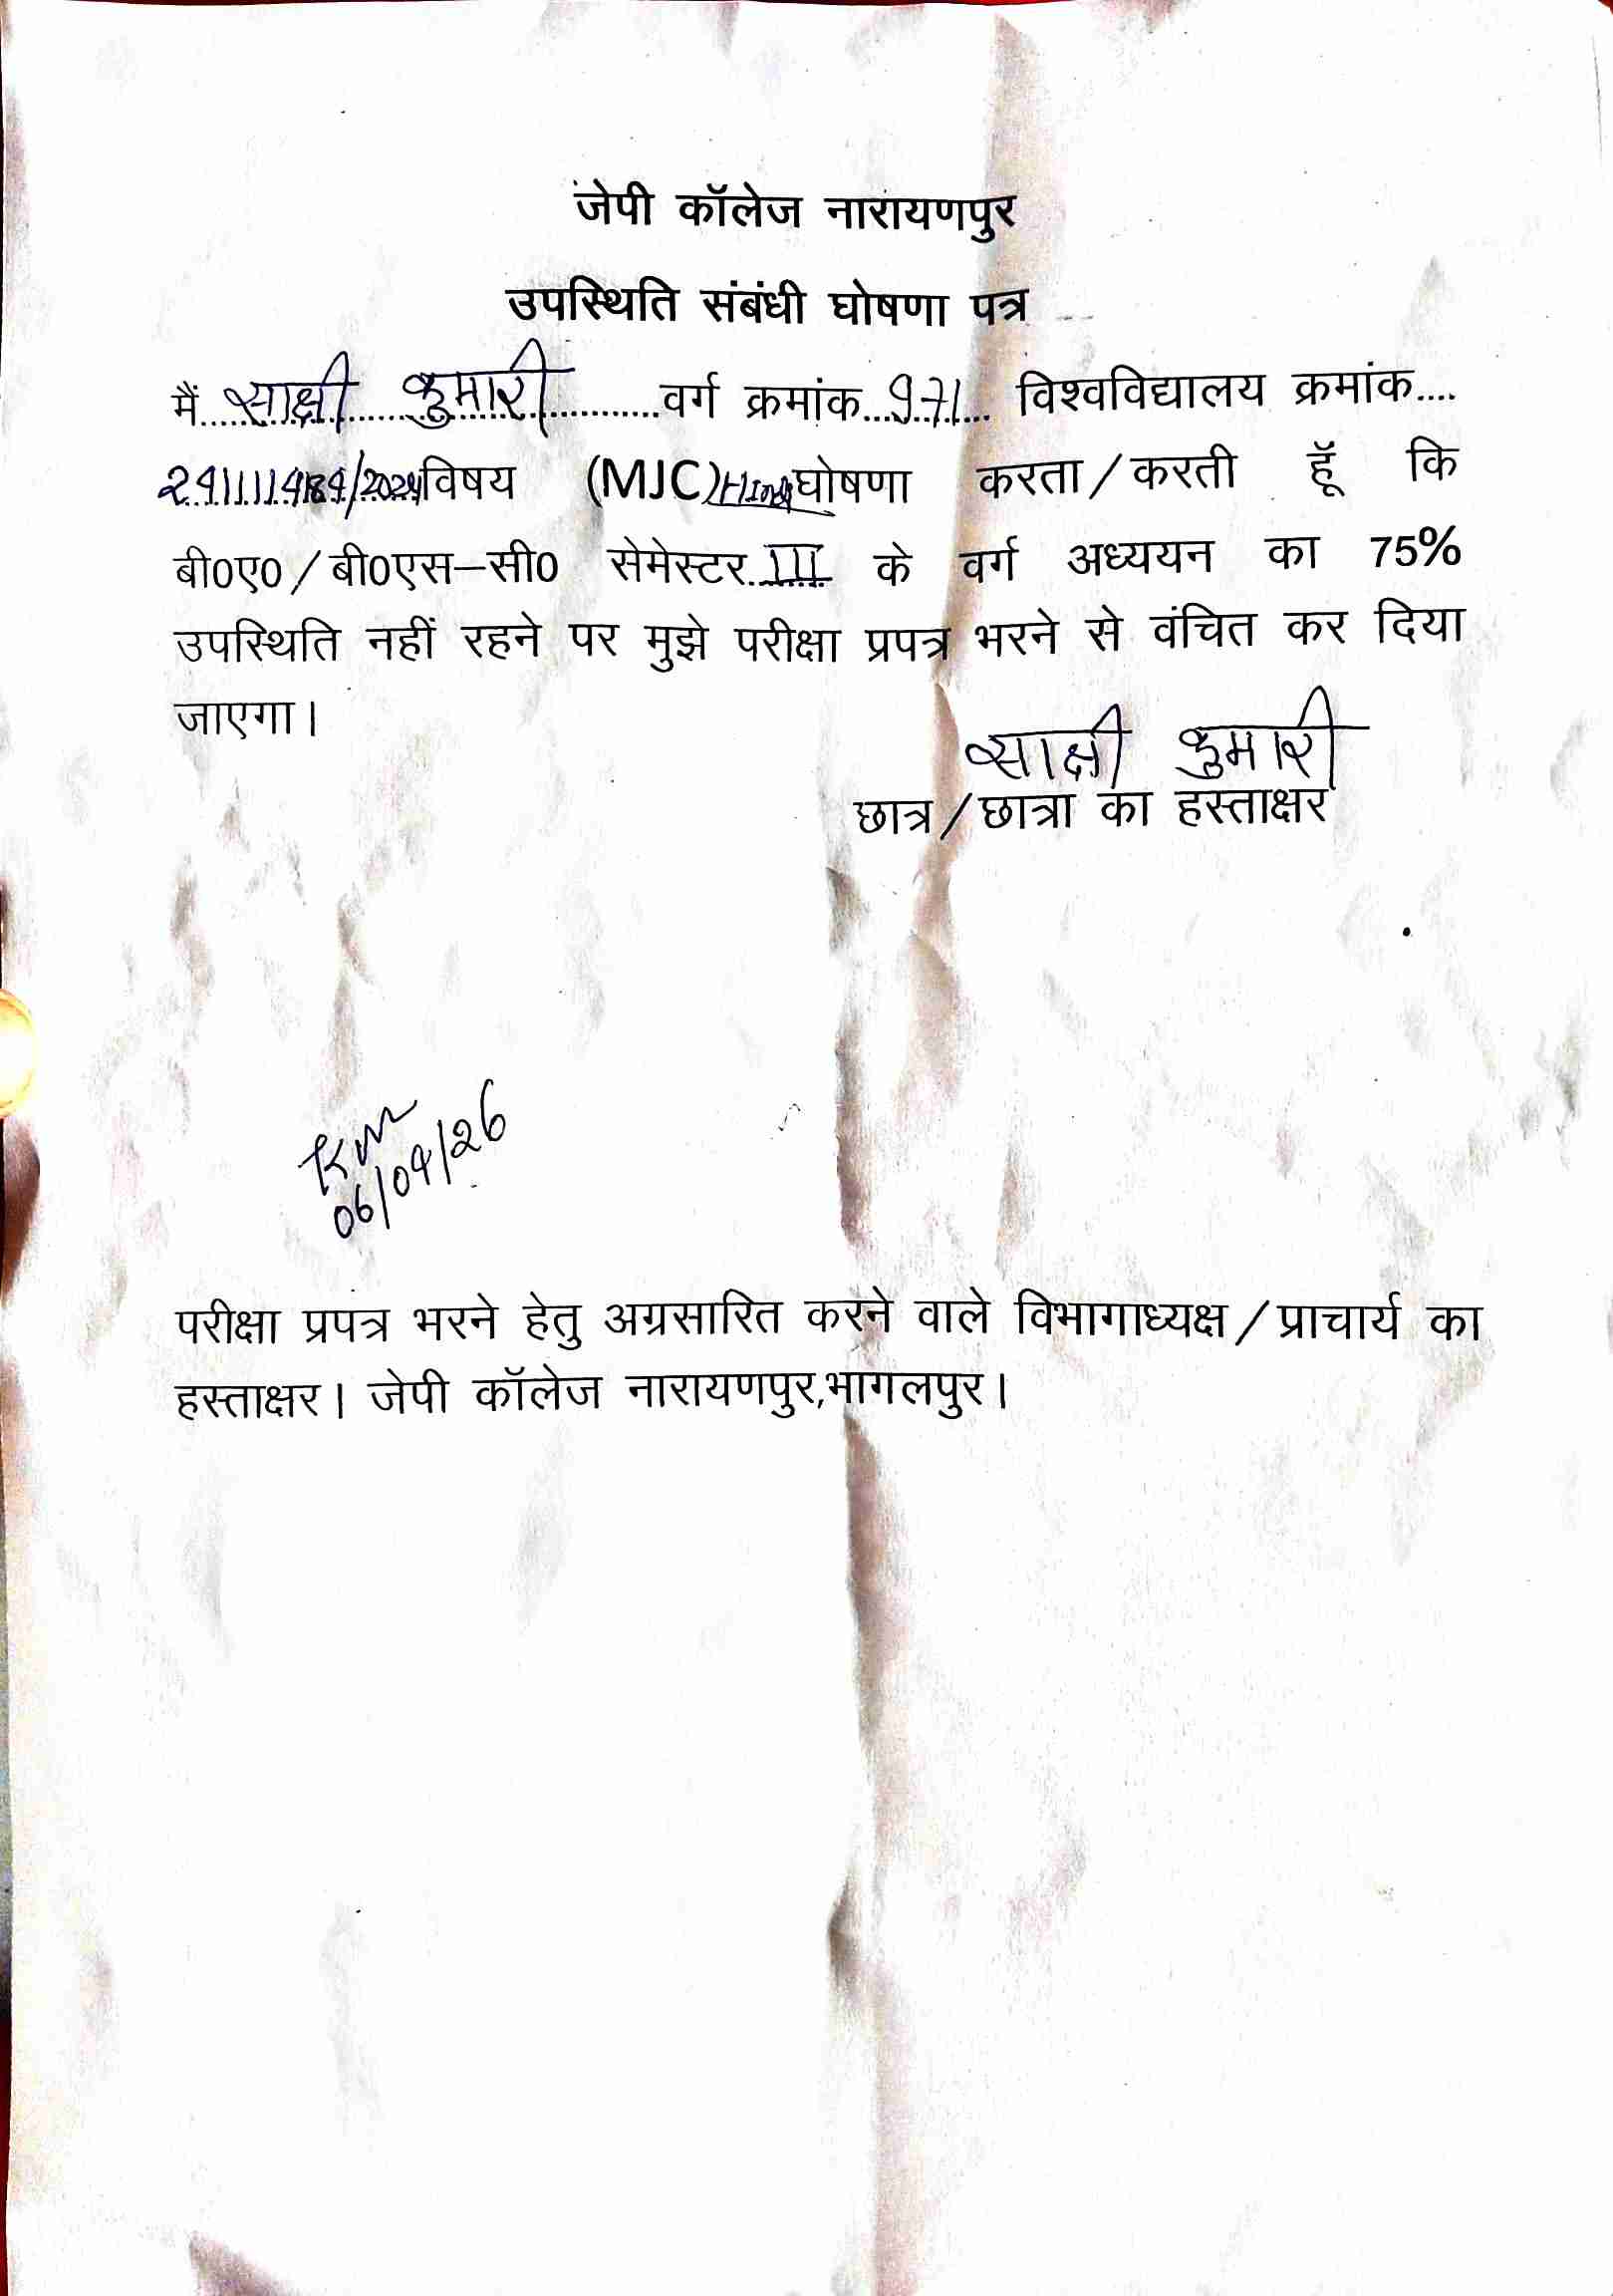 जेपी कॉलेज नारायणपुर
उपस्थिति संबंधी घोषणा पत्र
मैं साक्षी कुमारी वर्ग क्रमांक 971 विश्वविद्यालय क्रमांक....
विषय (MJC) Hindi घोषणा करता/करती हूँ कि
बी0ए0/बी0एस–सी0 सेमेस्टर III के वर्ग अध्ययन का 75%
उपस्थिति नहीं रहने पर मुझे परीक्षा प्रपत्र भरने से वंचित कर दिया
जाएगा।
साक्षी कुमारी
छात्र/छात्रा का हस्ताक्षर
06/04/26
परीक्षा प्रपत्र भरने हेतु अग्रसारित करने वाले विभागाध्यक्ष/प्राचार्य का
हस्ताक्षर। जेपी कॉलेज नारायणपुर,भागलपुर।